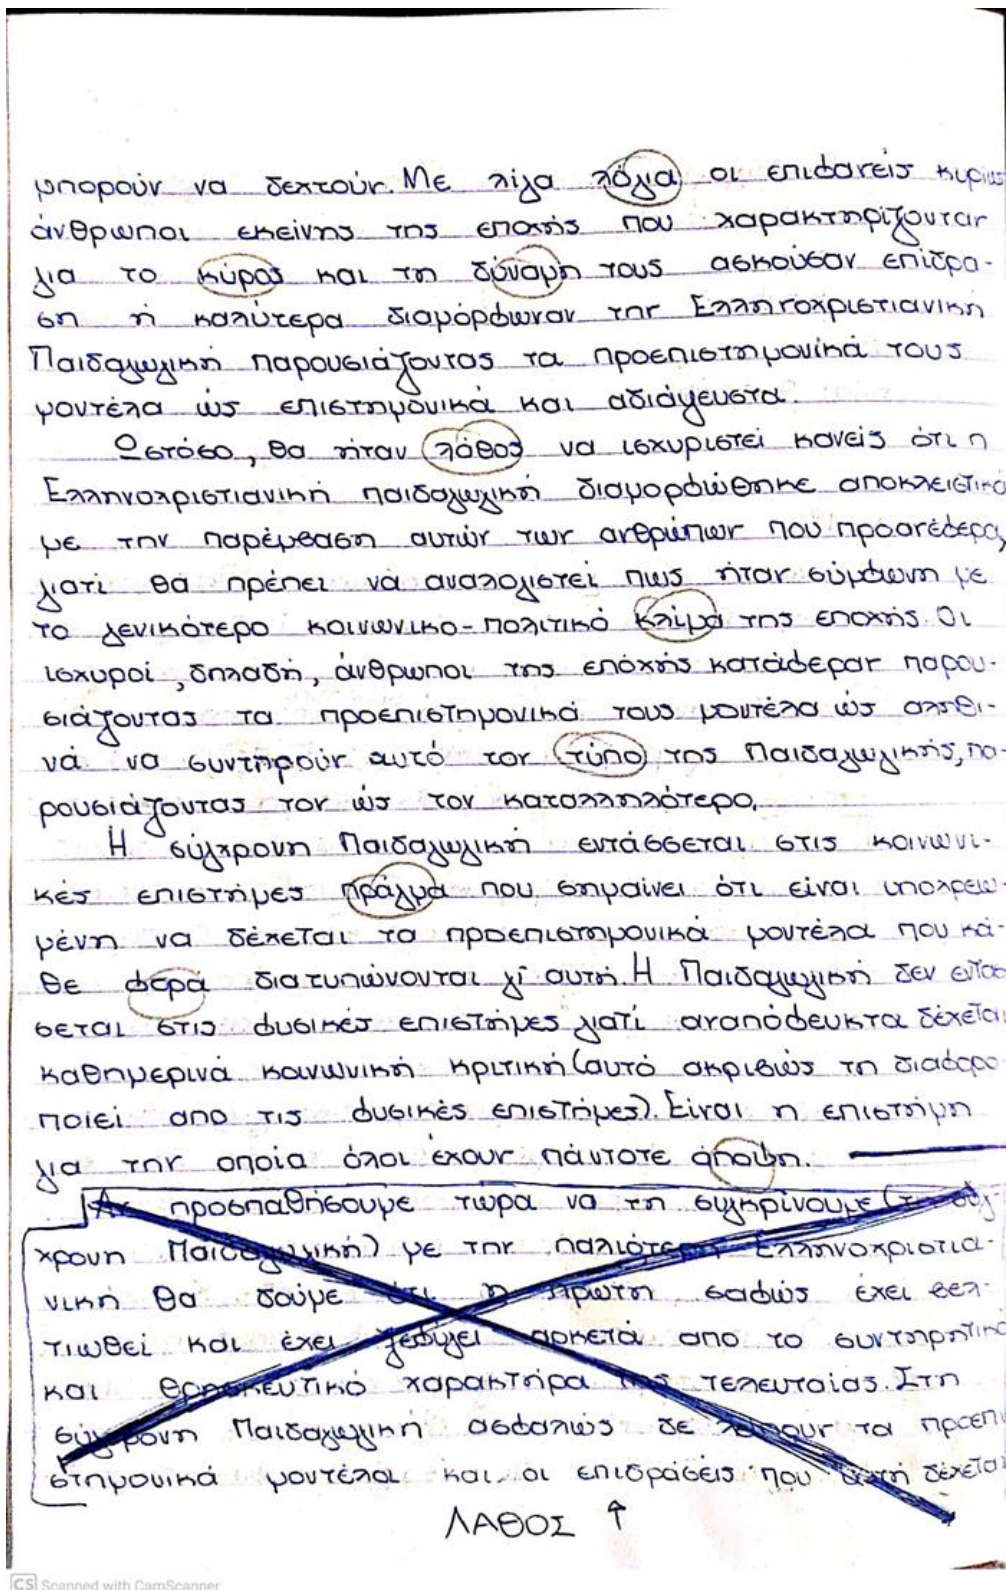 μπορούν να δεχτούν. Με λίγα λόγια οι επιφανείς κυρίως
άνθρωποι εκείνης της εποχής που χαρακτηρίζονταν
για το κύρος και τη δύναμη τους ασκούσαν επίδρα-
ση ή καλύτερα διαμόρφωναν την Ελληνοχριστιανική
Παιδαγωγική παρουσιάζοντας τα προεπιστημονικά τους
μοντέλα ώς επιστημονικά και αδιάψευστα.
Ωστόσο, θα ήταν λάθος να ισχυριστεί κανείς ότι η
Ελληνοχριστιανική παιδαγωγική διαμορφώθηκε αποκλειστικά
με την παρέμβαση αυτών των ανθρώπων που προανέφερα,
γιατί θα πρέπει να αναλογιστεί πως ήταν σύμφωνη με
το γενικότερο κοινωνικο-πολιτικό κλίμα της εποχής. Οι
ισχυροί, δηλαδή, άνθρωποι της εποχής κατάφεραν παρου-
σιάζοντας τα προεπιστημονικά τους μοντέλα ώς αληθι-
νά να συντηρούν αυτό τον τύπο της Παιδαγωγικής, πα-
ρουσιάζοντας τον ώς τον καταλληλότερο.
Η σύγχρονη Παιδαγωγική εντάσσεται στις κοινωνι-
κές επιστήμες πράγμα που σημαίνει ότι είναι υποχρεω-
μένη να δέχεται τα προεπιστημονικά μοντέλα που κά-
θε φερά διατυπώνονται γι αυτή. Η Παιδαγωγική δεν εντάσ
σεται στις φυσικές επιστήμες γιατί αναπόφευκτα δέχεται
καθημερινά κοινωνική κριτική (αυτό ακριβώς τη διαφορο
ποιεί απο τις φυσικές επιστήμες). Είναι η επιστήμη
για την οποία όλοι έχουν πάντοτε άποψη.
Ας προσπαθήσουμε τώρα να τη συγκρίνουμε (τη σύγ
χρονη Παιδαγωγική) με την παλιότερη Ελληνοχριστια-
νική θα δούμε ότι η πρώτη σαφώς έχει βελ-
τιωθεί και έχει ξεφύγει αρκετά απο το συντηρητικό
και θρησκευτικό χαρακτήρα της τελευταίας. Στη
σύγχρονη Παιδαγωγική ασφαλώς δε λείπουν τα προεπι
στημονικά μοντέλα και οι επιδράσεις που αυτή δέχεται
ΛΑΘΟΣ ↑
CS Scanned with CamScanner